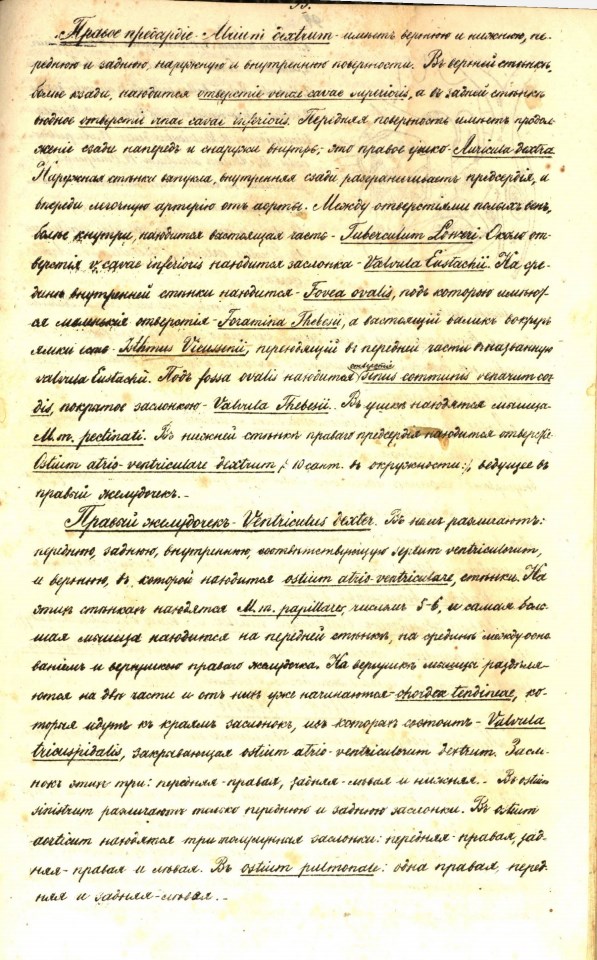 33.
Правое предсердіе - Atrium dextrum - имѣетъ верхнюю и нижнюю, пе-
реднюю и заднюю, наружную и внутреннюю поверхности. Въ верхней стѣнкѣ,
болѣе кзади, находится отверстіе venae cavae superioris, а въ задней стѣнкѣ
видное отверстіе venae cavae inferioris. Передняя поверхность имѣетъ продол-
женіе сзади напередъ и снаружи внутрь; это правое ушко - Auricula dextra
Наружная стѣнка выпукла, внутренняя сзади разграничиваетъ предсердія, и
впереди легочную артерію отъ аорты. Между отверстіями полыхъ венъ,
болѣе кнутри, находится выстоящая часть - Tuberculum Loweri. Около от-
верстія v. cavae inferioris находится заслонка - Valvula Eustachii. На сре-
динѣ внутренней стѣнки находится - Fovea ovalis, подъ которою имѣют-
ся маленькія отверстія - Foramina Thebesii, а выстоящій валикъ вокругъ
ямки есть - Isthmus Vieussenii, переходящій въ передней части въ названную
valvula Eustachii. Подъ fossa ovalis находится отверстіе sinus communis venarum cor-
dis, покрытое заслонкою - Valvula Thebesii. Въ ушкѣ находятся мышцы
M.m. pectinati. Въ нижней стѣнкѣ праваго предсердія находится отверстіе
Ostium atrio-ventriculare dextrum /: 10 сант. въ окружности :/, ведущее въ
правый желудочекъ. -
Правый желудочекъ - Ventriculus dexter. Въ немъ различаютъ:
переднюю, заднюю, внутреннюю, соотвѣтствующую septum ventriculorum,
и верхнюю, въ которой находится ostium atrio-ventriculare, стѣнки. На
этихъ стѣнкахъ находятся M.m. papillares, числомъ 5-6, и самая боль-
шая мышца находится на передней стѣнкѣ, на срединѣ между осно-
ваніемъ и верхушкою праваго желудочка. На верхушкѣ мышца раздѣля-
ются на двѣ части и отъ нихъ уже начинаются - chordea tendineae, ко-
торыя идутъ къ краямъ заслонокъ, изъ которыхъ состоитъ - Valvula
tricuspidalis, закрывающая ostium atrio-ventriculorum dextrum. Засло-
нокъ этихъ три: передняя-правая, задняя-лѣвая и нижняя. - Въ ostium
sinistrum различаютъ только переднюю и заднюю заслонки. Въ ostium
aorticum находятся три полулунныя заслонки: передняя-правая, зад-
няя-правая и лѣвая. Въ ostium pulmonale: одна правая, перед-
няя и задняя-лѣвая. -